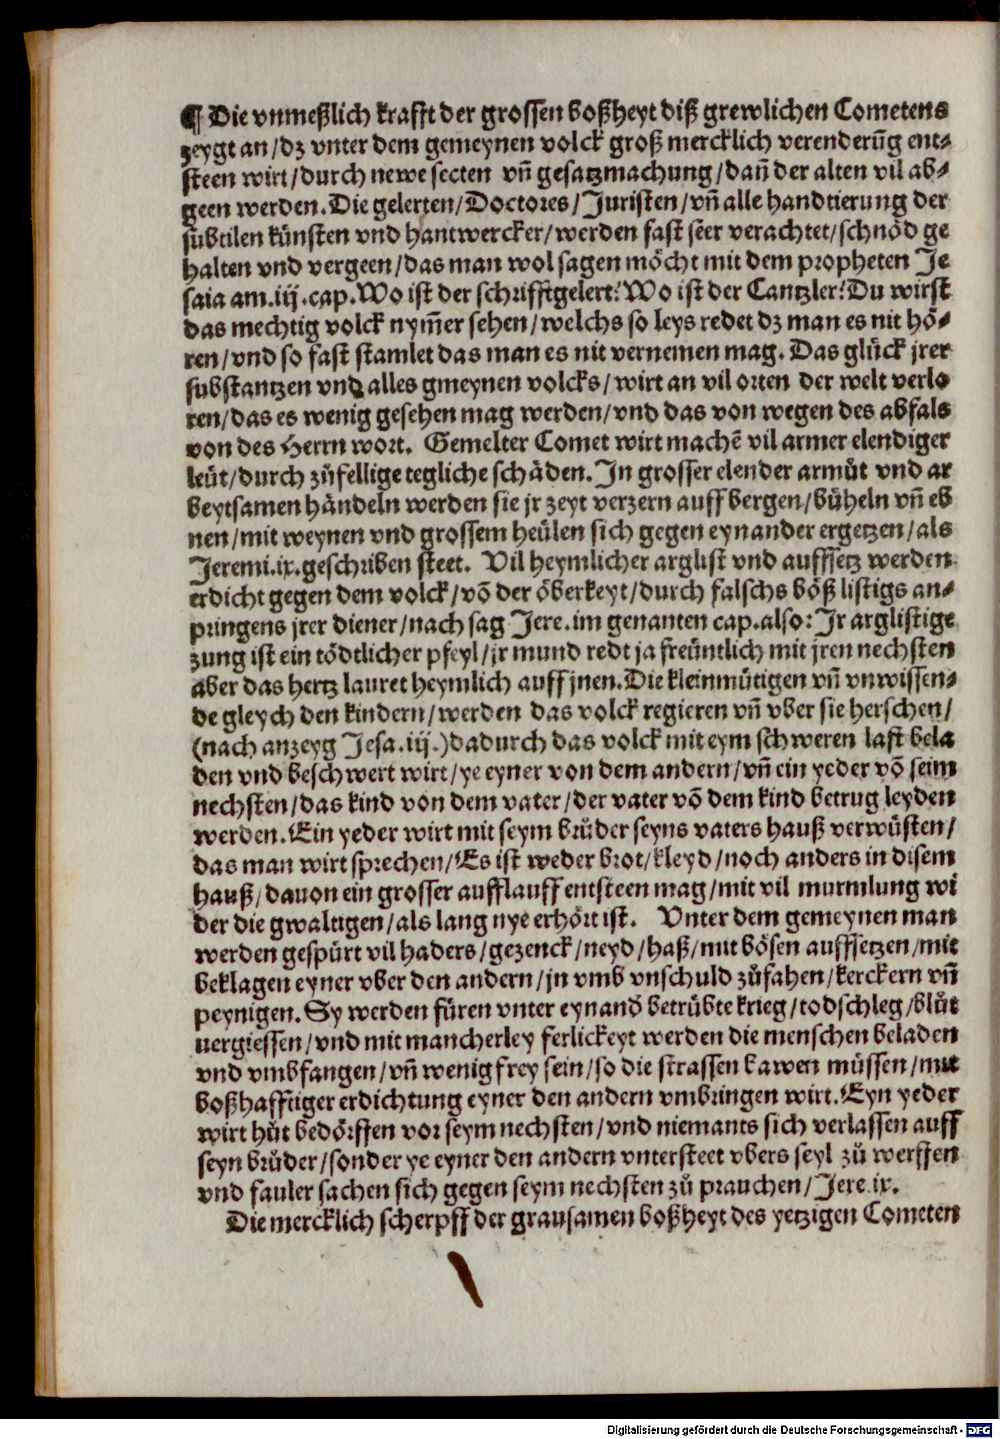 ¶ Die vnmeßlich krafft der grossen boßheyt diß grewlichen Cometens
zeygt an / dz vnter dem gemeynen volck groß mercklich verenderūg ent⸗
steen wirt / durch newe secten vn̄ gesatzmachung / dañ der alten vil ab⸗
geen werden. Die gelerten / Doctores / Juristen / vn̄ alle handtierung der
subtilen künsten vnd hantwercker / werden fast seer verachtet / schnöd ge
halten vnd vergeen / das man wol sagen möcht mit dem propheten Je
saia am .iij. cap. Wo ist der schrifftgelert? Wo ist der Cantzler? Du wirst
das mechtig volck nym̄er sehen / welchs so leys redet dz man es nit hö⸗
ren / vnd so fast stamlet das man es nit vernemen mag. Das glück jrer
substantzen vnd alles gmeynen volcks / wirt an vil orten der welt verlo
ren / das es wenig gesehen mag werden / vnd das von wegen des abfals
von des Herrn wort. Gemelter Comet wirt machē vil armer elendiger
leüt / durch zůfellige tegliche schäden. In grosser elender armůt vnd ar
beytsamen händeln werden sie jr zeyt verzern auff bergen / büheln vn̄ eb
nen / mit weynen vnd grossem heülen sich gegen eynander ergetzen / als
Jeremi. ix. geschriben steet. Vil heymlicher arglist vnd auffsetz werden
erdicht gegen dem volck / vō der öberkeyt / durch falschs böß listigs an⸗
pringens jrer diener / nach sag Jere. im genanten cap. also: Jr arglistige
zung ist ein tödtlicher pfeyl / jr mund redt ja freüntlich mit jren nechsten
aber das hertz lauret heymlich auff jnen. Die kleinmütigen vn̄ vnwissen⸗
de gleych den kindern / werden das volck regieren vn̄ vber sie herschen /
(nach anzeyg Jesa. iij.) dadurch das volck mit eym schweren last bela
den vnd beschwert wirt / ye eyner von dem andern / vn̄ ein yeder vō seim
nechsten / das kind von dem vater / der vater vō dem kind betrug leyden
werden. Ein yeder wirt mit seym brůder seyns vaters hauß verwüsten /
das man wirt sprechen / Es ist weder brot / kleyd / noch anders in disem
hauß / dauon ein grosser aufflauff entsteen mag / mit vil murmlung wi
der die gwaltigen / als lang nye erhört ist. Vnter dem gemeynen man
werden gespürt vil haders / gezenck / neyd / haß / mit bösen auffsetzen / mit
beklagen eyner vber den andern / jn vmb vnschuld zůfahen / kerckern vn̄
peynigen. Sy werden füren vnter eynand̄ betrübte krieg / todschleg / blůt
uergiessen / vnd mit mancherley ferlickeyt werden die menschen beladen
vnd vmbfangen / vn̄ wenig frey sein / so die strassen bawen müssen / mit
boßhafftiger erdichtung eyner den andern vmbringen wirt. Eyn yeder
wirt hůt bedörffen vor seym nechsten / vnd niemants sich verlassen auff
seyn brůder / sonder ye eyner den andern vntersteet vbers seyl zů werffen
vnd fauler sachen sich gegen seym nechsten zů prauchen / Jere. ix.
Die mercklich scherpff der grausamen boßheyt des yetzigen Cometen
Digitalisierung gefördert durch die Deutsche Forschungsgemeinschaft - DFG